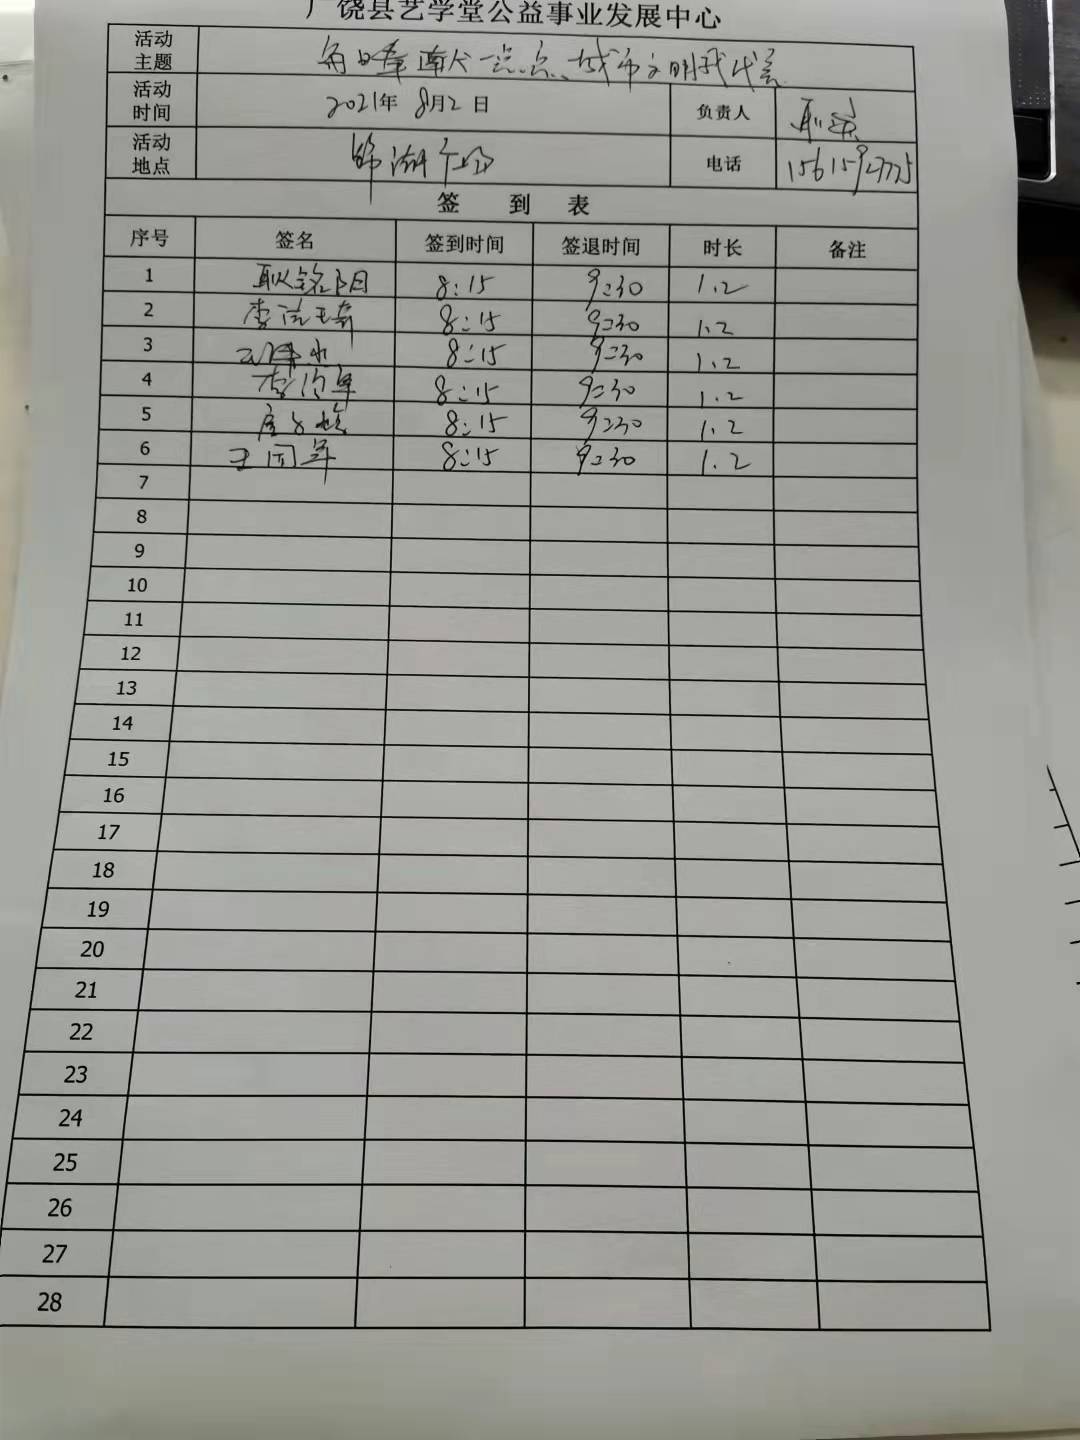 广饶县艺学堂公益事业发展中心
活动主题 每日奉献一点点、城市文明我代言
活动时间 2021年 8月2日 负责人
活动地点 锦湖广场 电话
签 到 表
序号 签名 签到时间 签退时间 时长 备注
1 耿铭阳 8:15 9:30 1.2
2 8:15 9:30 1.2
3 8:15 9:30 1.2
4 8:15 9:30 1.2
5 8:15 9:30 1.2
6 8:15 9:30 1.2
7
8
9
10
11
12
13
14
15
16
17
18
19
20
21
22
23
24
25
26
27
28